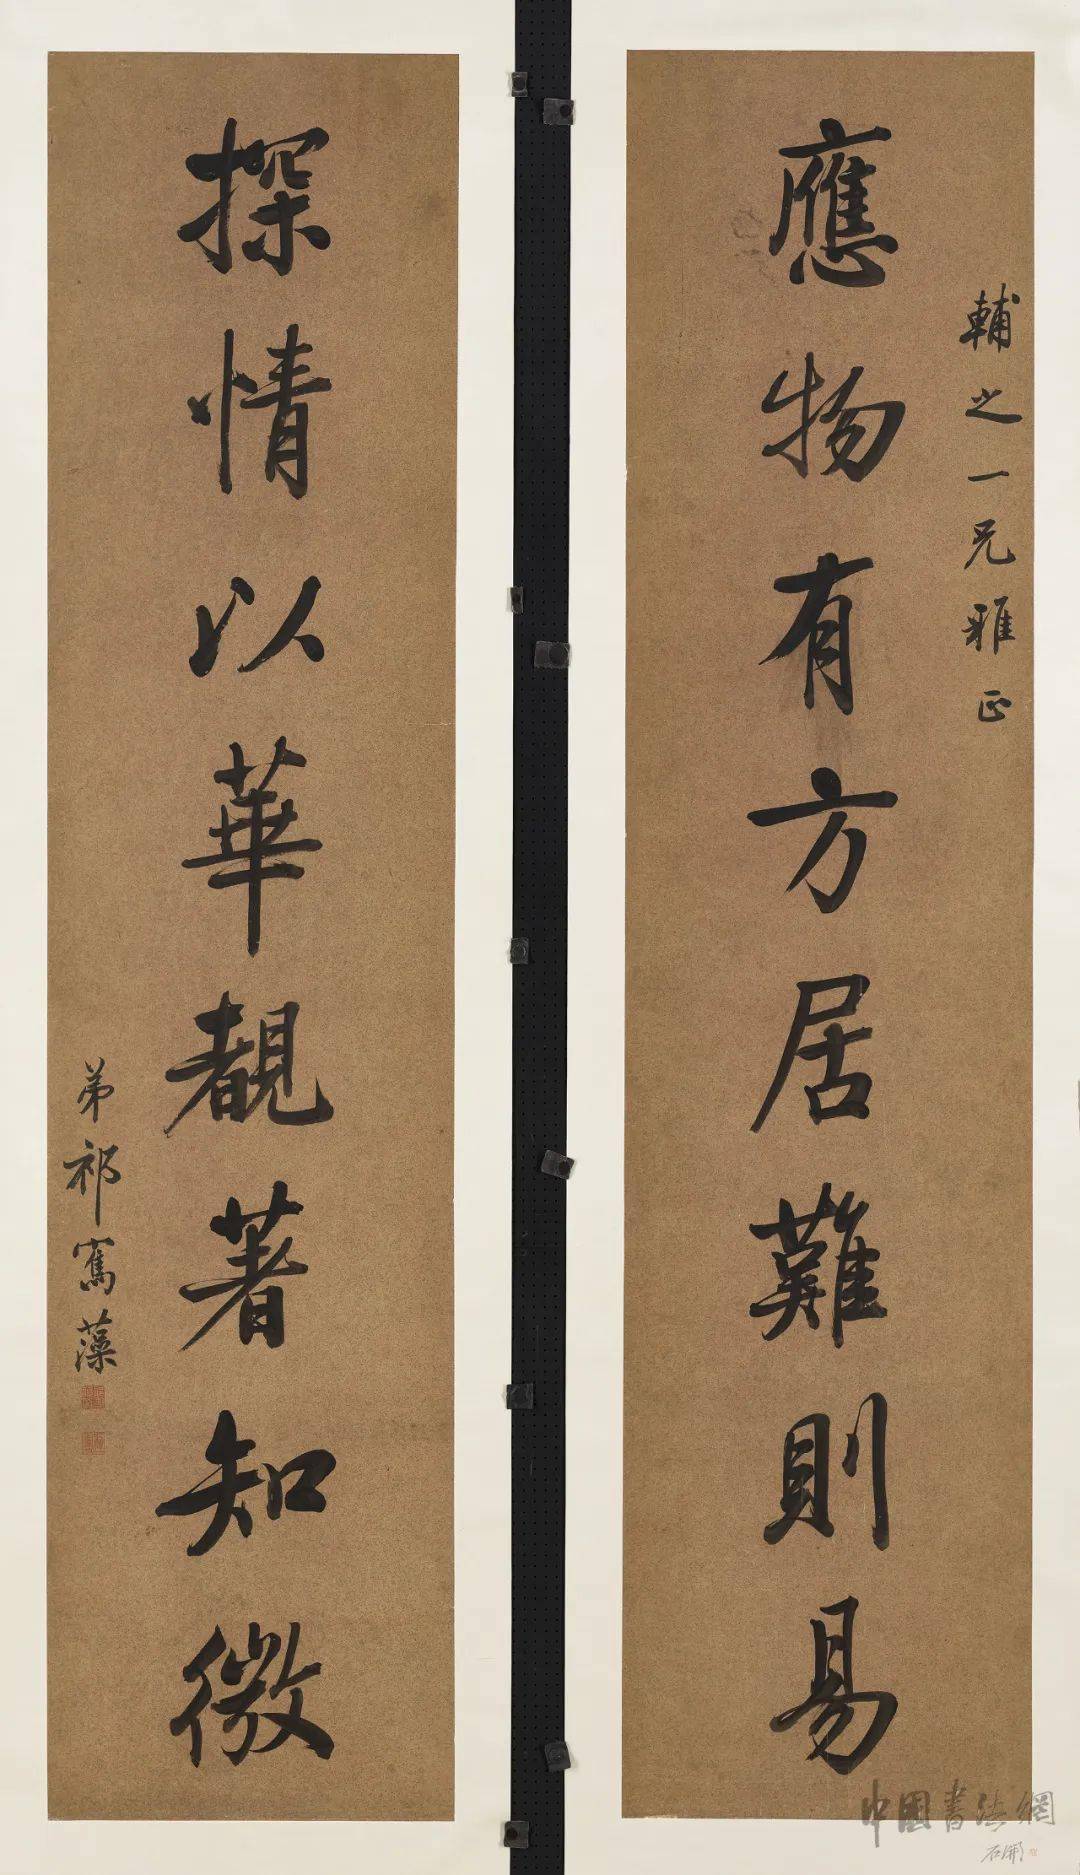 輔之一兄雅正
應物有方居難則易
探情以華覩著知微
弟祁寯藻
中國書法網